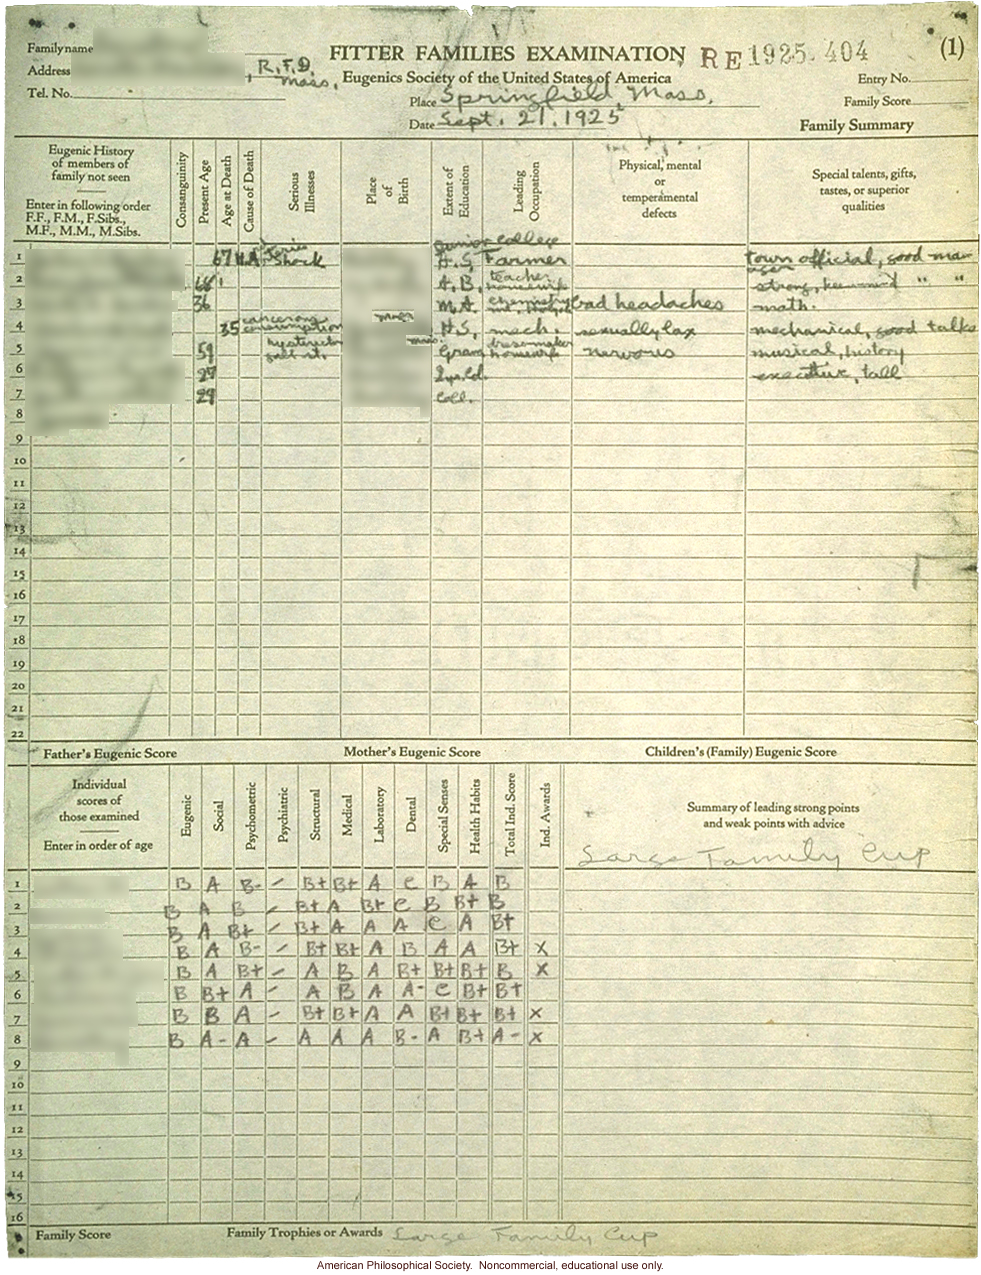 Family name
FITTER FAMILIES EXAMINATION RE 1925.404 (1)
Address R.F.D. Mass.
Eugenics Society of the United States of America
Entry No.
Tel. No.
Place Springfield Mass.
Family Score
Date Sept. 21. 1925
Family Summary
Eugenic History of members of family not seen
Enter in following order F.F., F.M., F.Sibs., M.F., M.M., M.Sibs.
Consanguinity
Present Age
Age at Death
Cause of Death
Serious Illnesses
Place of Birth
Extent of Education
Leading Occupation
Physical, mental or temperamental defects
Special talents, gifts, tastes, or superior qualities
1 67 Shock junior college Farmer town official, good man
2 68 A.B. teacher strong, " "
3 36 M.A. chemistry bad headaches math.
4 35 cancerous consumption Mass H.S. mech. sexually lax mechanical, good talks
5 59 Gram nervous musical, history
6 27 2 yrs. Col. executive, tall
7 29 Coll.
8
9
10
11
12
13
14
15
16
17
18
19
20
21
22
Father's Eugenic Score Mother's Eugenic Score Children's (Family) Eugenic Score
Individual scores of those examined
Enter in order of age
Eugenic
Social
Psychometric
Psychiatric
Structural
Medical
Laboratory
Dental
Special Senses
Health Habits
Total Ind. Score
Ind. Awards
Summary of leading strong points and weak points with advice
Large Family Cup
1 B A B- - B+ B+ A C B A B
2 B A B - B+ A B+ C B B+ B
3 B A B+ - B+ A A A C A B+
4 B A B- - B+ B+ A B A A B+ X
5 B A B+ - A B A B+ B+ B+ B X
6 B B+ A - A B A A- C B+ B+
7 B B A - B+ B+ A A B+ B+ B+ X
8 B A- A - A A A B- A B+ A- X
9
10
11
12
13
14
15
16
Family Score Family Trophies or Awards Large Family Cup
American Philosophical Society. Noncommercial, educational use only.